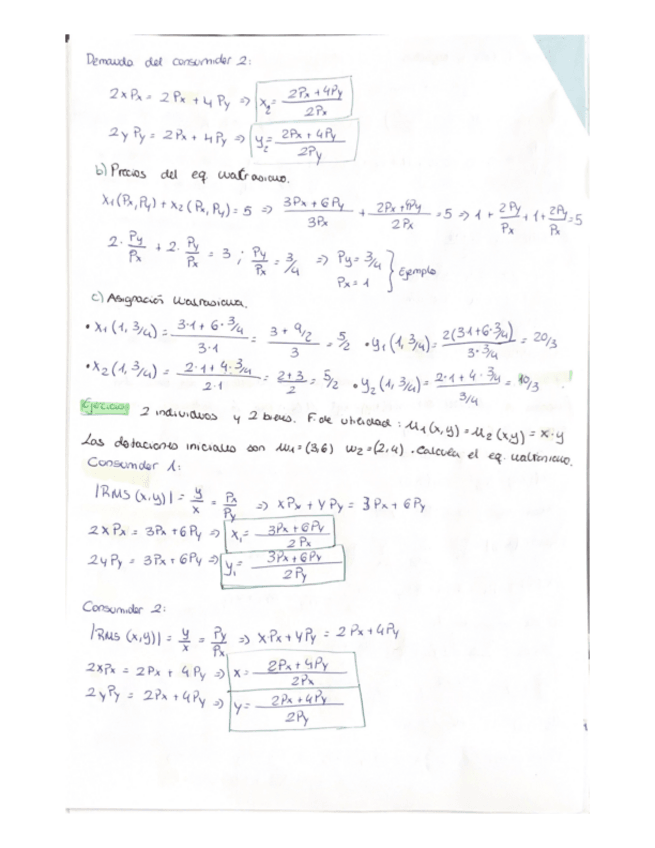 Demanda del consumidor 2:
2xPx = 2Px + 4Py ⇒ x₂ = (2Px + 4Py) / 2Px
2y Py = 2Px + 4Py ⇒ y₂ = (2Px + 4Py) / 2Py
b) Precios del eq walrasiano.
X₁(Px,Py) + X₂(Px,Py) = 5 ⇒ (3Px + 6Py) / 3Px + (2Px + 4Py) / 2Px = 5 ⇒ 1 + 2Py/Px + 1 + 2Py/Px = 5
2·Py/Px + 2·Py/Px = 3 ; Py/Px = 3/4 ⇒ Py = 3/4 Px = 1 } Ejemplo
c) Asignación Walrasiana.
• X₁(1, 3/4) = (3·1 + 6·3/4) / 3·1 = (3 + 9/2) / 3 = 5/2 • y₁(1, 3/4) = 2(3·1 + 6·3/4) / 3·3/4 = 20/3
• X₂(1, 3/4) = (2·1 + 4·3/4) / 2·1 = (2+3) / 2 = 5/2 • y₂(1, 3/4) = (2·1 + 4·3/4) / 3/4 = 10/3
Ejercicio 2 individuos y 2 bienes. F. de utilidad : u₁(x,y) = u₂(x,y) = x·y
Las dotaciones iniciales son w₁=(3,6) w₂=(2,4). Calcula el eq. walrasiano.
Consumidor 1:
|RMS (x,y)| = y/x = Px/Py ⇒ xPx + yPy = 3Px + 6Py
2xPx = 3Px + 6Py ⇒ x₁ = (3Px + 6Py) / 2Px
2yPy = 3Px + 6Py ⇒ y₁ = (3Px + 6Py) / 2Py
Consumidor 2:
|RMS (x,y)| = y/x = Py/Px ⇒ xPx + yPy = 2Px + 4Py
2xPx = 2Px + 4Py ⇒ x = (2Px + 4Py) / 2Px
2yPy = 2Px + 4Py ⇒ y = (2Px + 4Py) / 2Py